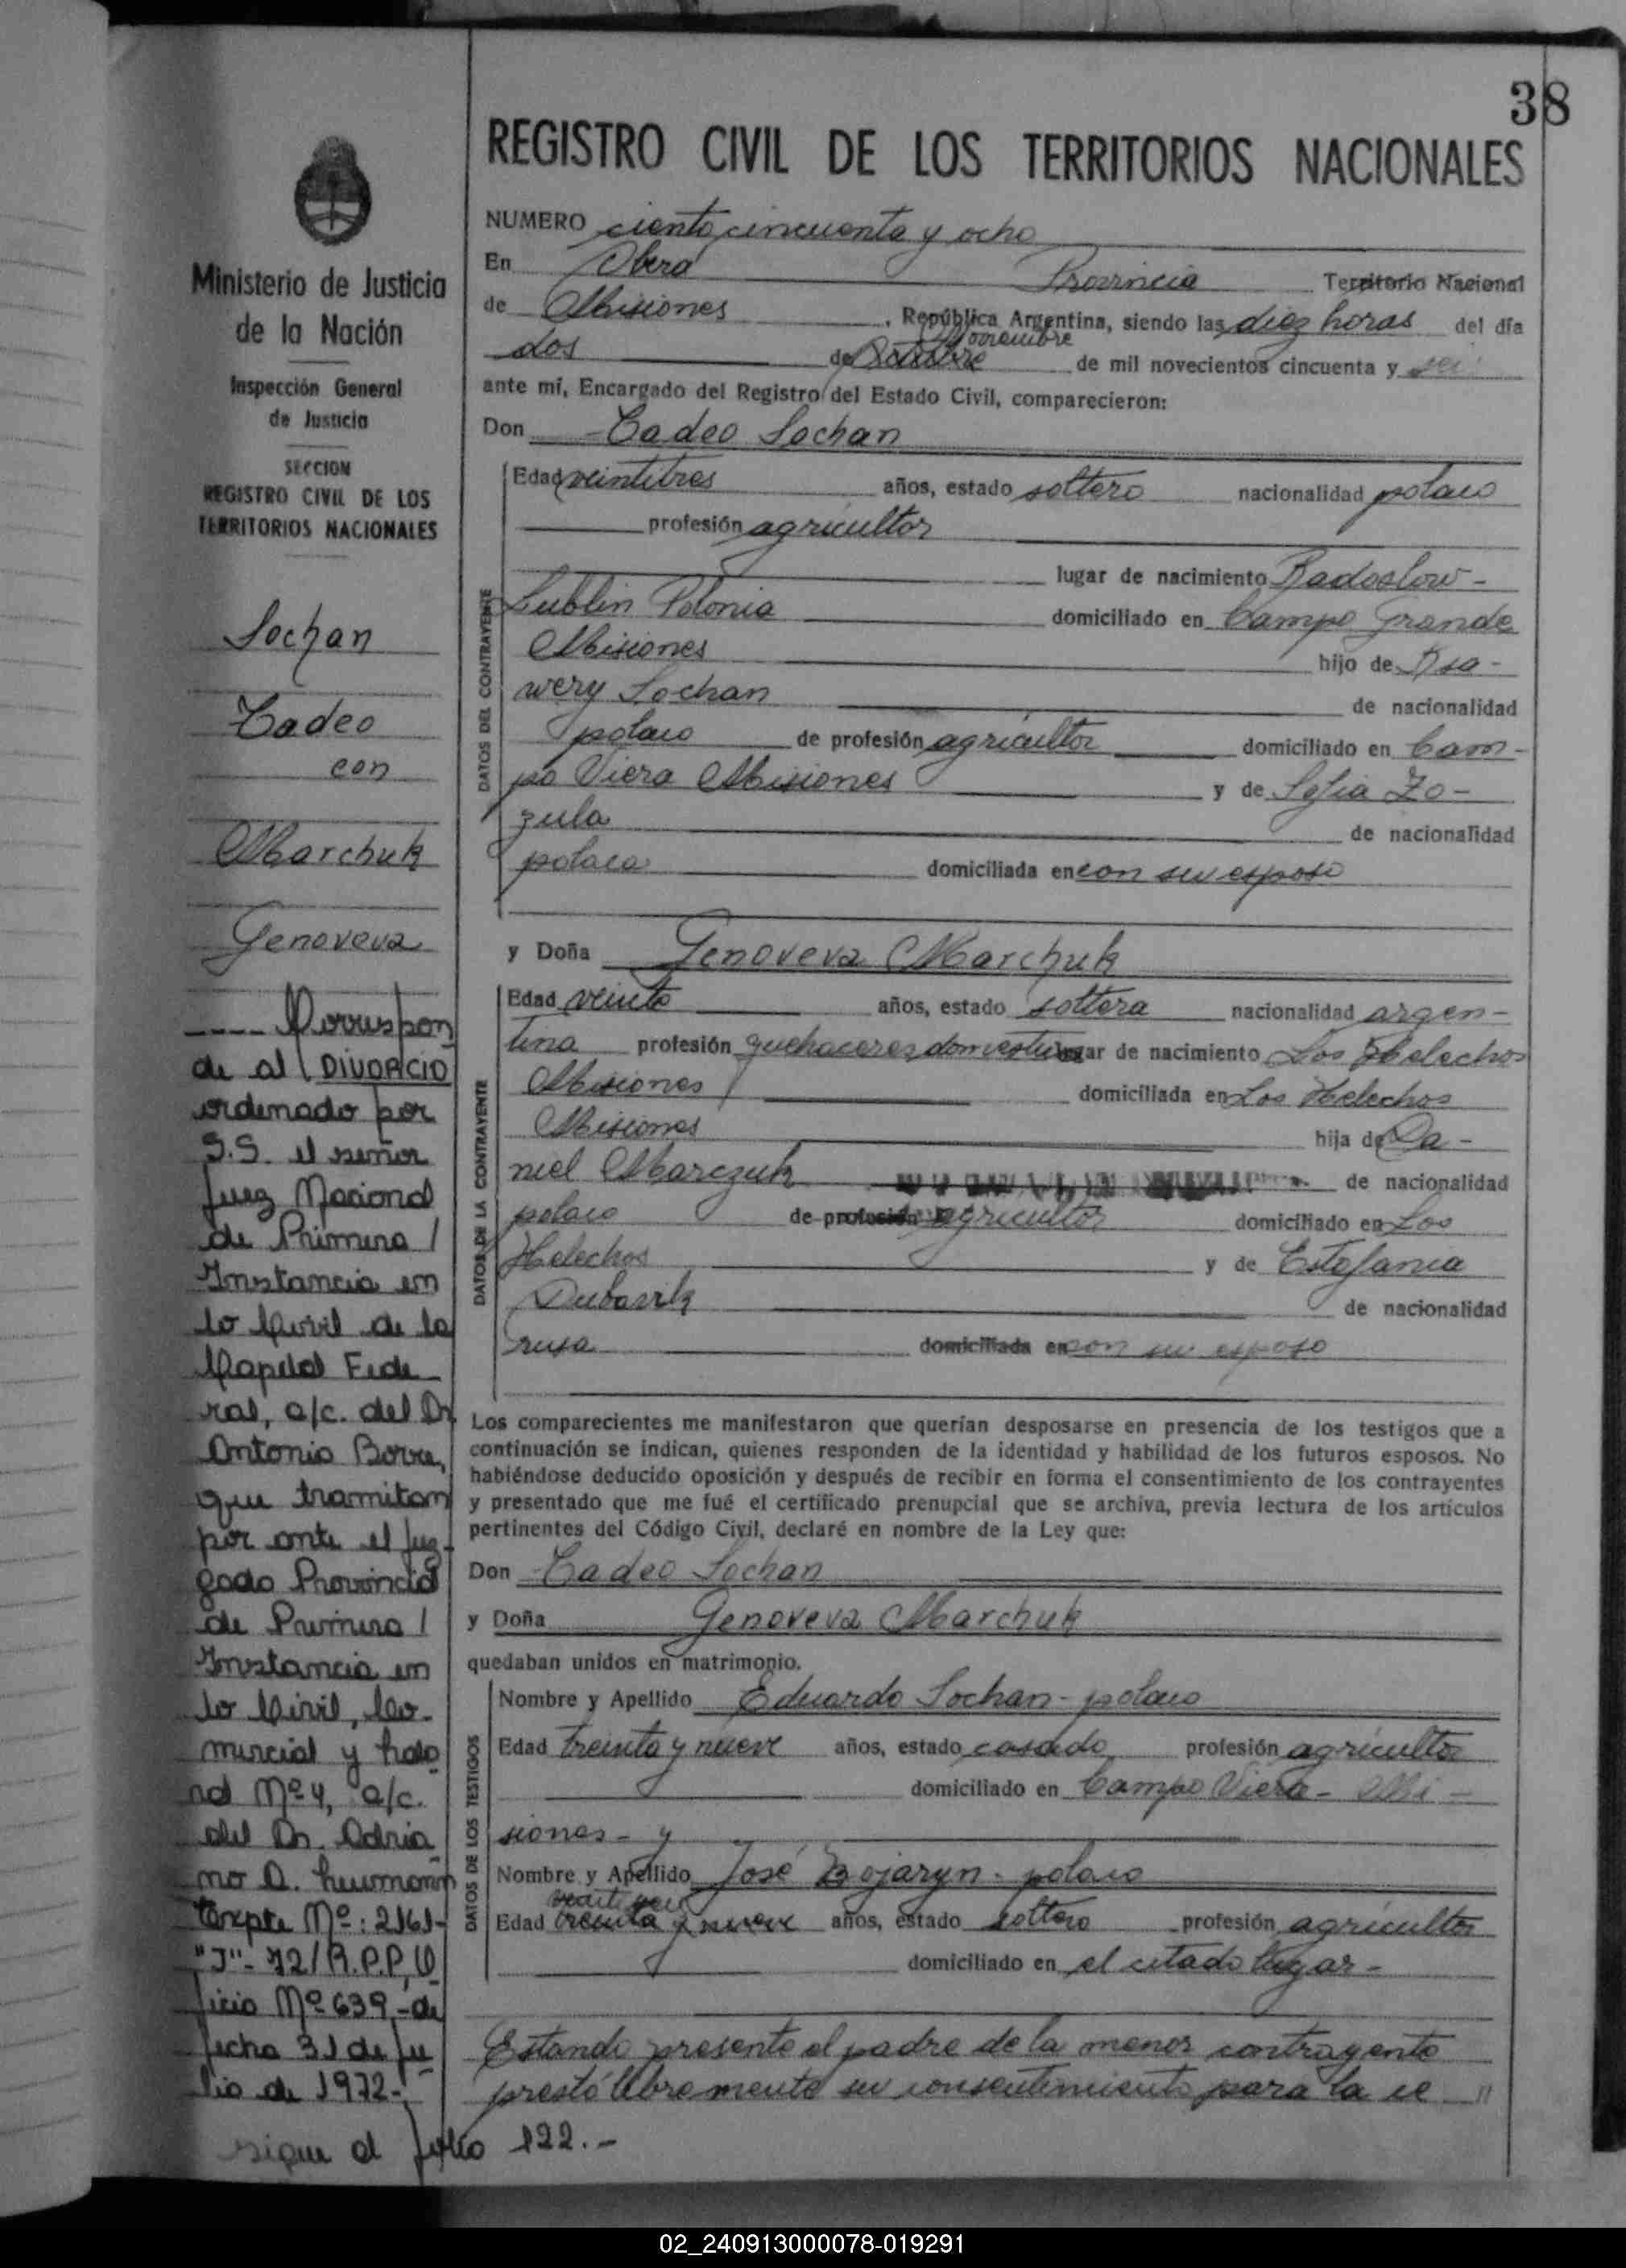 38
REGISTRO CIVIL DE LOS TERRITORIOS NACIONALES
Ministerio de Justicia
de la Nación
Inspección General
de Justicia
SECCION
REGISTRO CIVIL DE LOS
TERRITORIOS NACIONALES
Sochan
Tadeo
con
Marchuk
Genoveva
---- Corrupon
de al DIVORCIO
ordenado por
S.S. el señor
Juez Nacional
de Primera /
Instancia en
lo Civil de la
Capital Fede
ral, a/c. del Dr
Antonio
que tramitan
por ante el Juz-
gado Provincial
de Primera /
Instancia en
lo Civil, Co-
mercial y
Nº 4, a/c.
del Dr. Adria
no D.
Expte Nº: 2161-
"J"-72/R.P.P, O
ficio Nº 639,- de
fecha 31 de Ju
lio de 1972-
sigue al folio 122.-
NUMERO ciento cincuenta y ocho
En Obera Provincia Territorio Nacional
de Misiones , República Argentina, siendo las diez horas del día
noviembre
dos de Octubre de mil novecientos cincuenta y seis
ante mí, Encargado del Registro del Estado Civil, comparecieron:
Don Tadeo Sochan
DATOS DEL CONTRAYENTE
Edad veintitres años, estado soltero nacionalidad polaco
profesión agricultor
lugar de nacimiento Radoslow-
Lublin Polonia domiciliado en Campo Grande
Misiones hijo de Ksa-
wery Sochan de nacionalidad
polaco de profesión agricultor domiciliado en Cam-
po Viera Misiones y de Sofia Zo-
zula de nacionalidad
polaca domiciliada en con su esposo
y Doña Genoveva Marchuk
DATOS DE LA CONTRAYENTE
Edad veinte años, estado soltera nacionalidad argen-
tina profesión quehaceres domesticos lugar de nacimiento Los Helechos
Misiones domiciliada en Los Helechos
Misiones hija de Da-
niel Marczuk de nacionalidad
polaco de profesión agricultor domiciliado en Los
Helechos y de Estefania
Dubovik de nacionalidad
rusa domiciliada en con su esposo
Los comparecientes me manifestaron que querían desposarse en presencia de los testigos que a
continuación se indican, quienes responden de la identidad y habilidad de los futuros esposos. No
habiéndose deducido oposición y después de recibir en forma el consentimiento de los contrayentes
y presentado que me fué el certificado prenupcial que se archiva, previa lectura de los artículos
pertinentes del Código Civil, declaré en nombre de la Ley que:
Don Tadeo Sochan
y Doña Genoveva Marchuk
quedaban unidos en matrimonio.
DATOS DE LOS TESTIGOS
Nombre y Apellido Eduardo Sochan - polaco
Edad treinta y nueve años, estado casado profesión agricultor
domiciliado en Campo Viera - Mi-
siones - y
Nombre y Apellido José Bojaryn - polaco
Edad treinta y nueve años, estado soltero profesión agricultor
domiciliado en el citado lugar -
Estando presente el padre de la menor contrayente
prestó libremente su consentimiento para la ce "
02_240913000078-019291